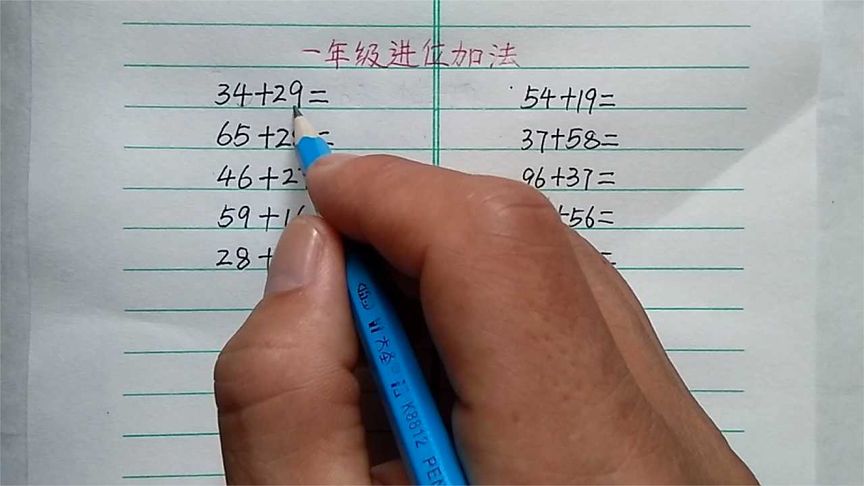 一年级进位加法
34+29= 54+19=
65+2 = 37+58=
46+2 96+37=
59+1 +56=
28+ =
K8812 PEN